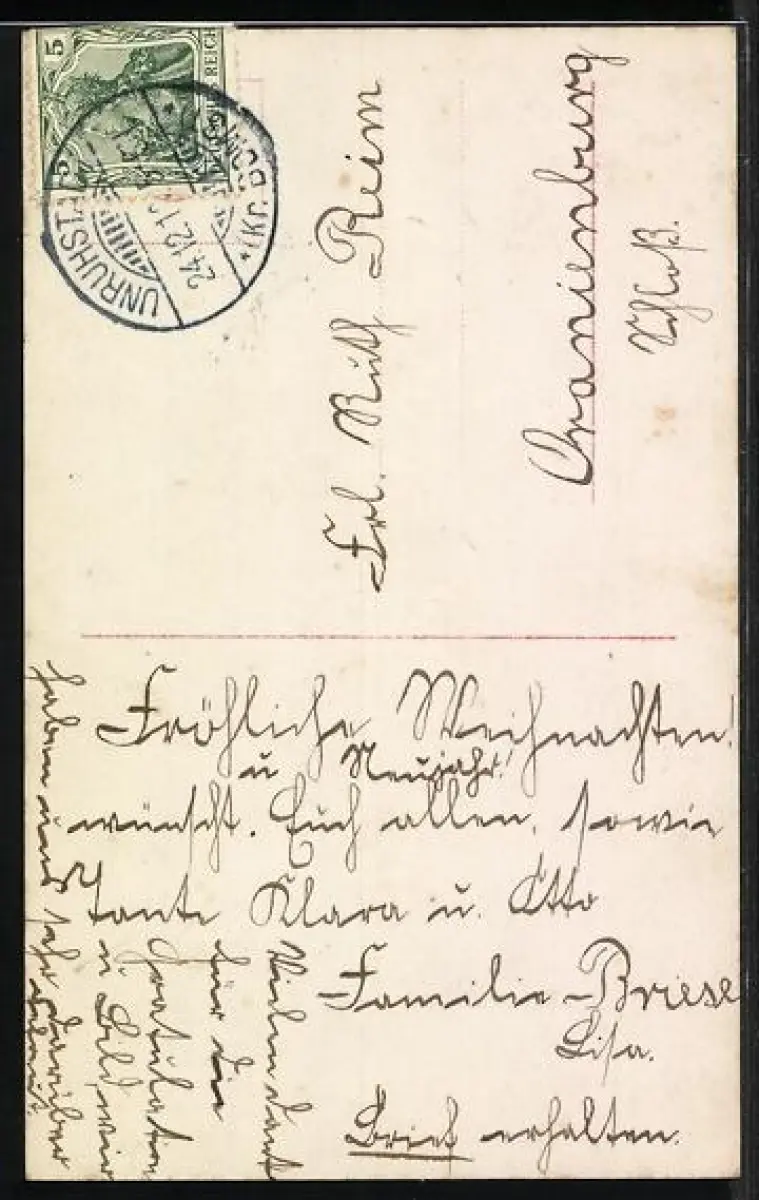 5
REICH
UNRUHSTADT
*(Kr. BOMST)*
24.12.1
Frl. Ruth Reim
Oranienburg
Schloß.
Fröhliche Weihnachten!
u Neujahr!
wünscht. Euch allen, sowie
Tante Klara u. Otto
Familie Briese
Lisa.
Brief erhalten.
Vielen Dank
für die
Gratulation
u Bild, wir
haben uns sehr darüber
gefreut.